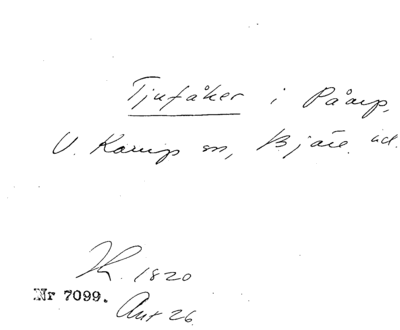 Tjufåker i Påarp,
V. Karup sn, Bjäre. hd.
1820
Nr 7099. Ant 26